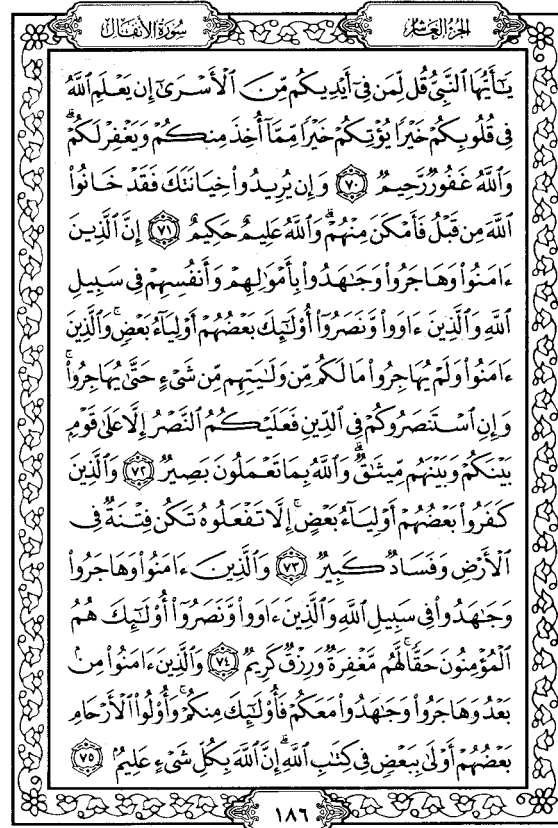 سُورَةُ الأَنفَالِ
الجُزْءُ العَاشِرُ
يَٰٓأَيُّهَا ٱلنَّبِىُّ قُل لِّمَن فِىٓ أَيْدِيكُم مِّنَ ٱلْأَسْرَىٰٓ إِن يَعْلَمِ ٱللَّهُ
فِى قُلُوبِكُمْ خَيْرًا يُؤْتِكُمْ خَيْرًا مِّمَّآ أُخِذَ مِنكُمْ وَيَغْفِرْ لَكُمْ ۗ
وَٱللَّهُ غَفُورٌ رَّحِيمٌ ٧٠ وَإِن يُرِيدُوا۟ خِيَانَتَكَ فَقَدْ خَانُوا۟
ٱللَّهَ مِن قَبْلُ فَأَمْكَنَ مِنْهُمْ ۗ وَٱللَّهُ عَلِيمٌ حَكِيمٌ ٧١ إِنَّ ٱلَّذِينَ
ءَامَنُوا۟ وَهَاجَرُوا۟ وَجَٰهَدُوا۟ بِأَمْوَٰلِهِمْ وَأَنفُسِهِمْ فِى سَبِيلِ
ٱللَّهِ وَٱلَّذِينَ ءَاوَوا۟ وَّنَصَرُوٓا۟ أُو۟لَٰٓئِكَ بَعْضُهُمْ أَوْلِيَآءُ بَعْضٍ ۚ وَٱلَّذِينَ
ءَامَنُوا۟ وَلَمْ يُهَاجِرُوا۟ مَا لَكُم مِّن وَلَٰيَتِهِم مِّن شَىْءٍ حَتَّىٰ يُهَاجِرُوا۟ ۚ
وَإِنِ ٱسْتَنصَرُوكُمْ فِى ٱلدِّينِ فَعَلَيْكُمُ ٱلنَّصْرُ إِلَّا عَلَىٰ قَوْمٍۭ
بَيْنَكُمْ وَبَيْنَهُم مِّيثَٰقٌ ۗ وَٱللَّهُ بِمَا تَعْمَلُونَ بَصِيرٌ ٧٢ وَٱلَّذِينَ
كَفَرُوا۟ بَعْضُهُمْ أَوْلِيَآءُ بَعْضٍ ۚ إِلَّا تَفْعَلُوهُ تَكُن فِتْنَةٌ فِى
ٱلْأَرْضِ وَفَسَادٌ كَبِيرٌ ٧٣ وَٱلَّذِينَ ءَامَنُوا۟ وَهَاجَرُوا۟
وَجَٰهَدُوا۟ فِى سَبِيلِ ٱللَّهِ وَٱلَّذِينَ ءَاوَوا۟ وَّنَصَرُوٓا۟ أُو۟لَٰٓئِكَ هُمُ
ٱلْمُؤْمِنُونَ حَقًّا ۚ لَّهُم مَّغْفِرَةٌ وَرِزْقٌ كَرِيمٌ ٧٤ وَٱلَّذِينَ ءَامَنُوا۟ مِنۢ
بَعْدُ وَهَاجَرُوا۟ وَجَٰهَدُوا۟ مَعَكُمْ فَأُو۟لَٰٓئِكَ مِنكُمْ ۚ وَأُو۟لُوا۟ ٱلْأَرْحَامِ
بَعْضُهُمْ أَوْلَىٰ بِبَعْضٍ فِى كِتَٰبِ ٱللَّهِ ۗ إِنَّ ٱللَّهَ بِكُلِّ شَىْءٍ عَلِيمٌۢ ٧٥
١٨٦